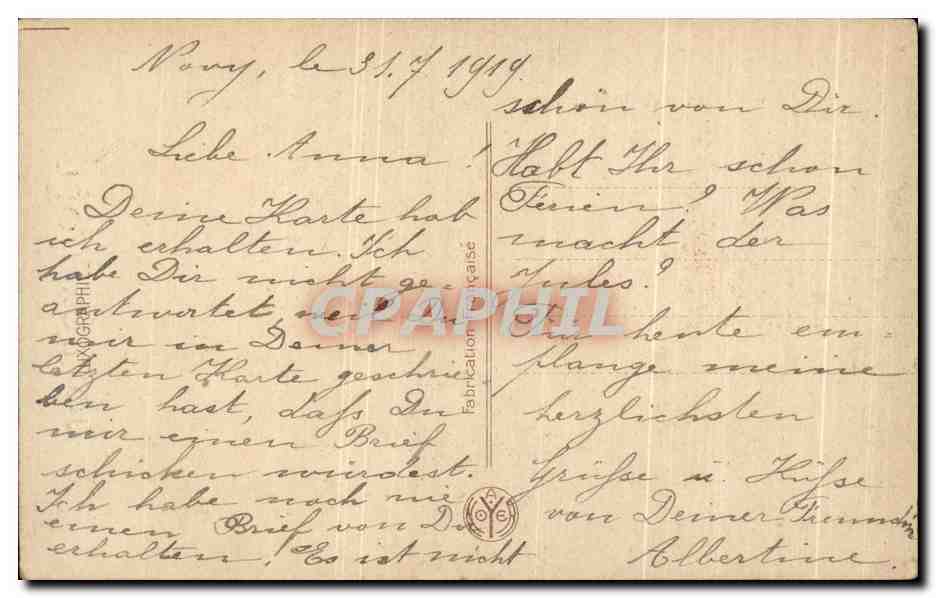 Novy, le 31.7 1919.
Liebe Anna!
Deine Karte hab
ich erhalten. Ich
habe Dir nicht ge-
antwortet, weil Du
mir in Deiner
letzten Karte geschrie-
ben hast, dass Du
mir einen Brief
schicken würdest.
Ich habe noch nie
einen Brief von Dir
erhalten! Es ist nicht
schön von Dir.
Habt Ihr schon
Ferien? Was
macht der
Jules?
Für heute em=
pfange meine
herzlichsten
Grüsse u. Küsse
von Deiner Freundin
Albertine.
Fabrication Française
CPAPHIL